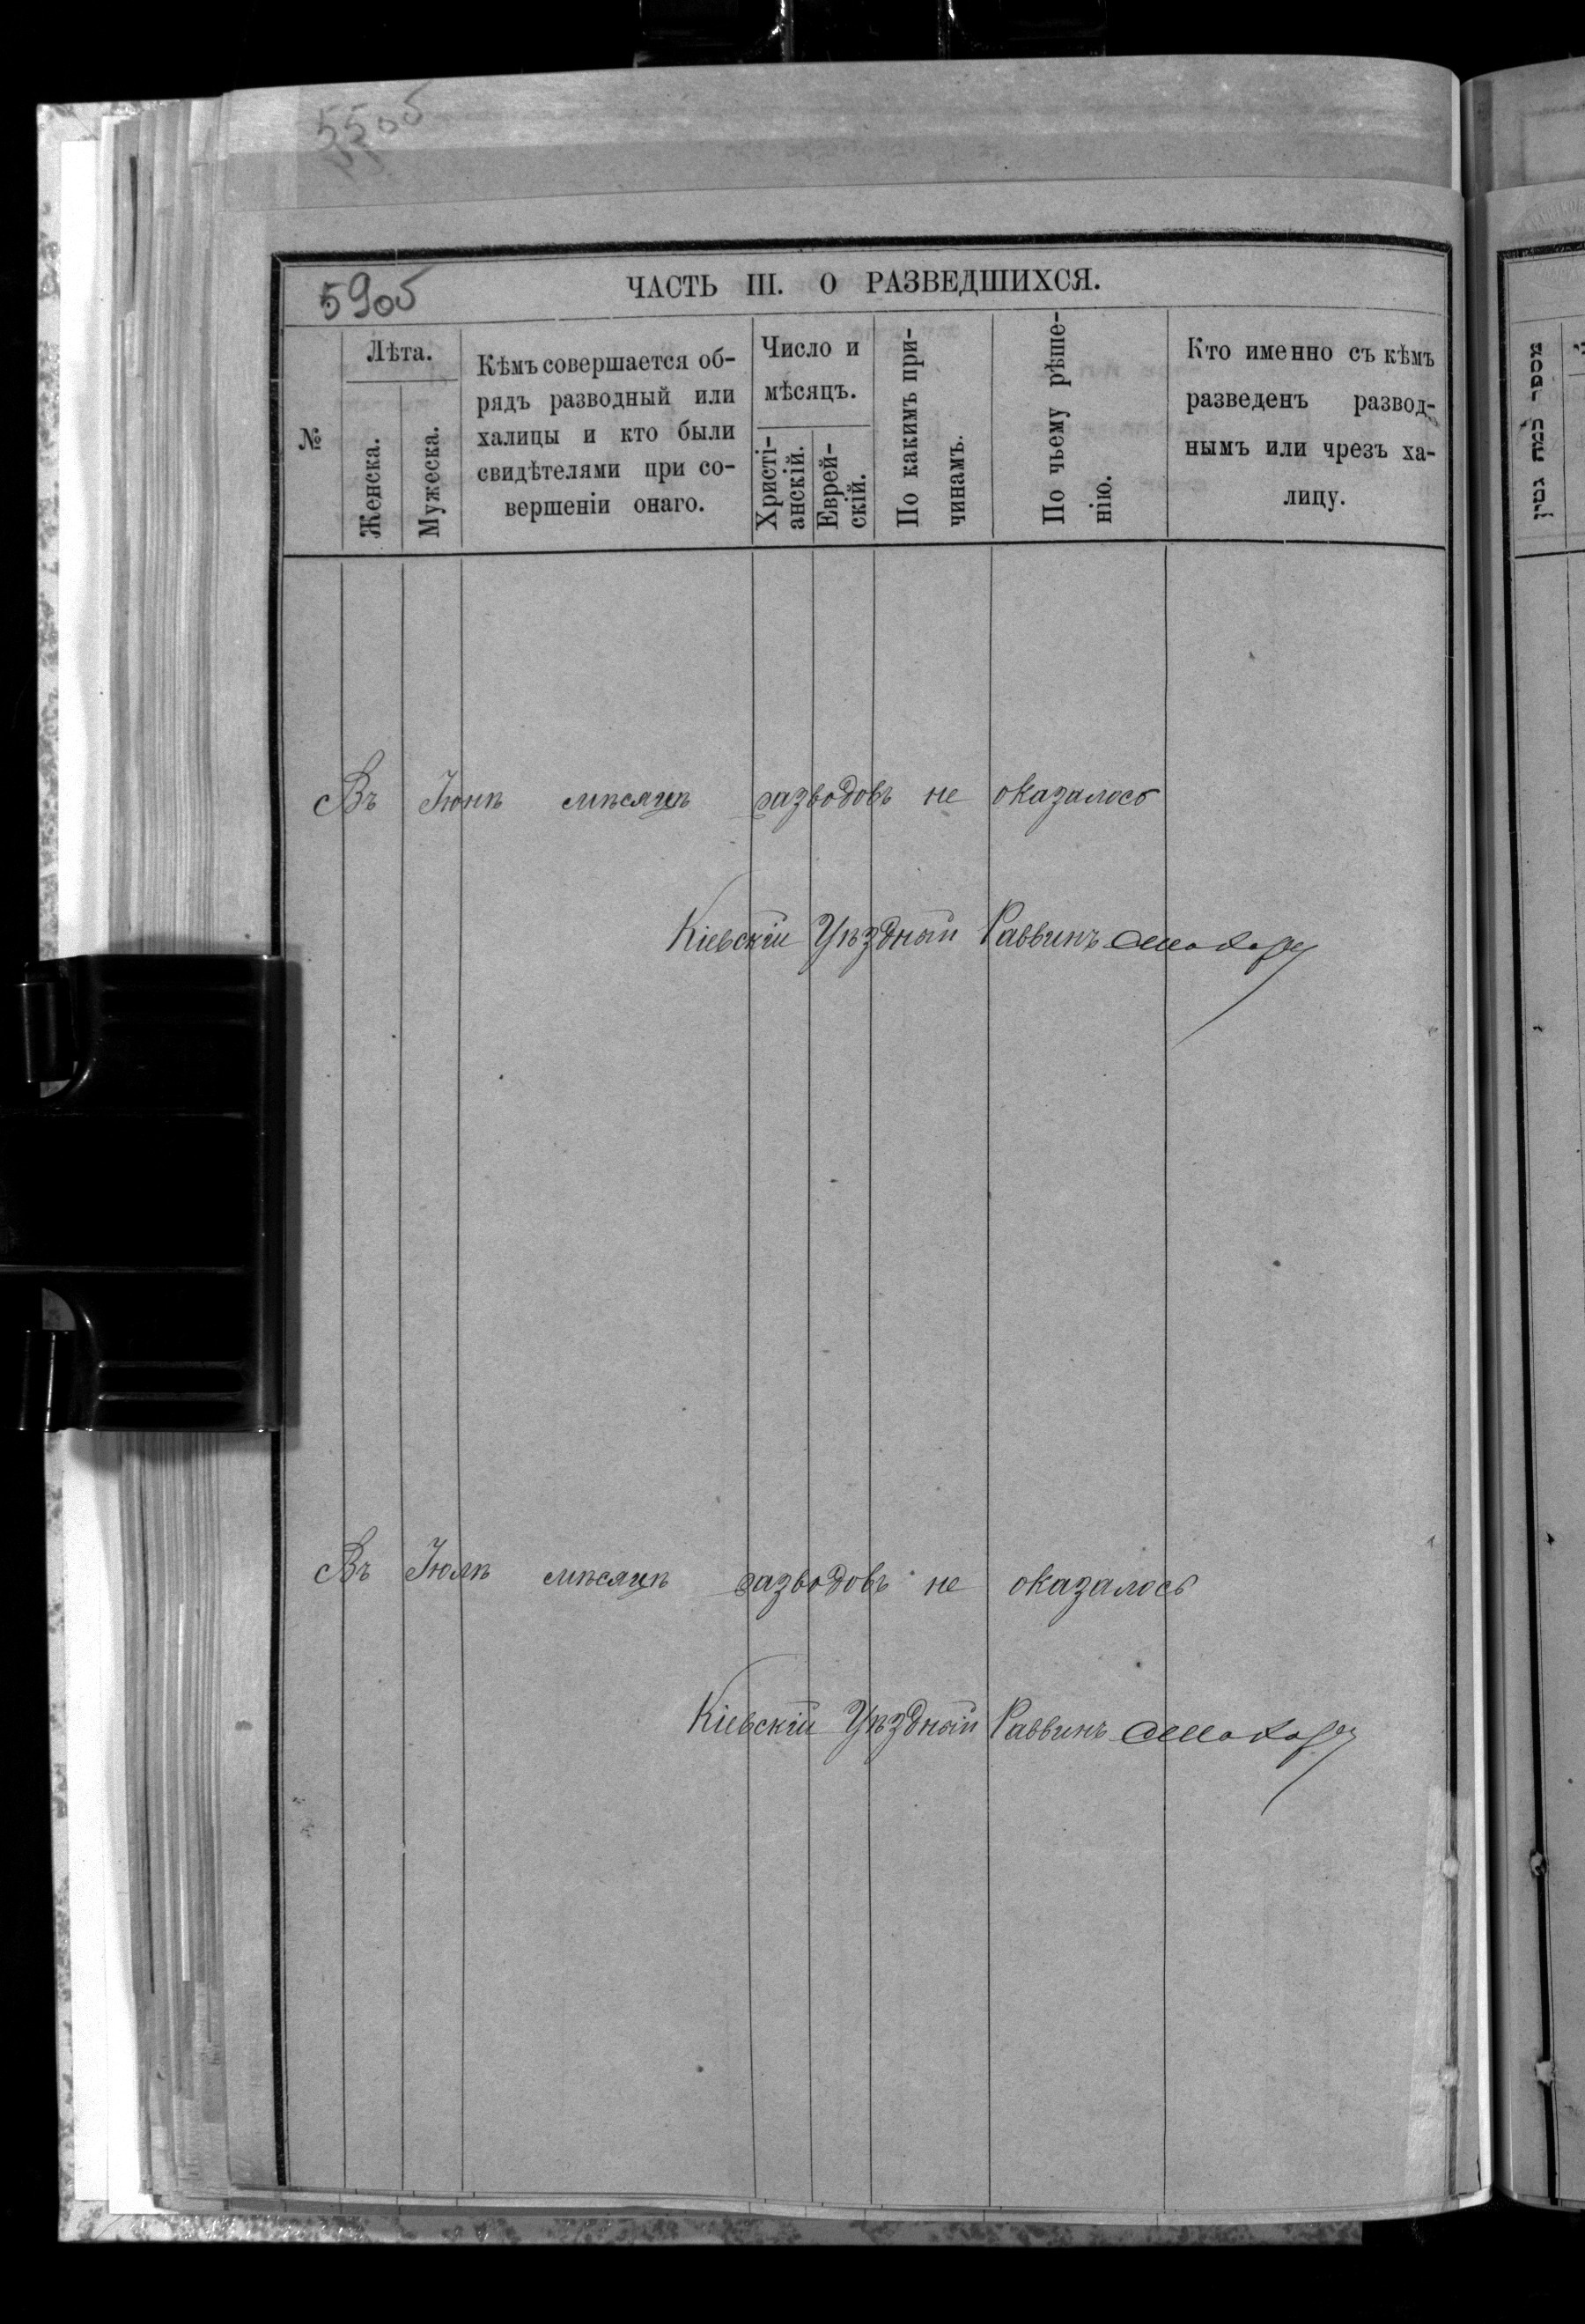 55об
59об
ЧАСТЬ III. О РАЗВЕДШИХСЯ.
№
Лѣта.
Женска.
Мужеска.
Кѣмъ совершается об-
рядъ разводный или
халицы и кто были
свидѣтелями при со-
вершеніи онаго.
Число и
мѣсяцъ.
Христі-
анскій.
Еврей-
скій.
По какимъ при-
чинамъ.
По чьему рѣше-
нію.
Кто именно съ кѣмъ
разведенъ развод-
нымъ или чрезъ ха-
лицу.
מספר כמה גטין
Въ Іюнѣ мѣсяцѣ разводовъ не оказалось
Кіевскій Уѣздный Раввинъ
Въ Іюлѣ мѣсяцѣ разводовъ не оказалось
Кіевскій Уѣздный Раввинъ